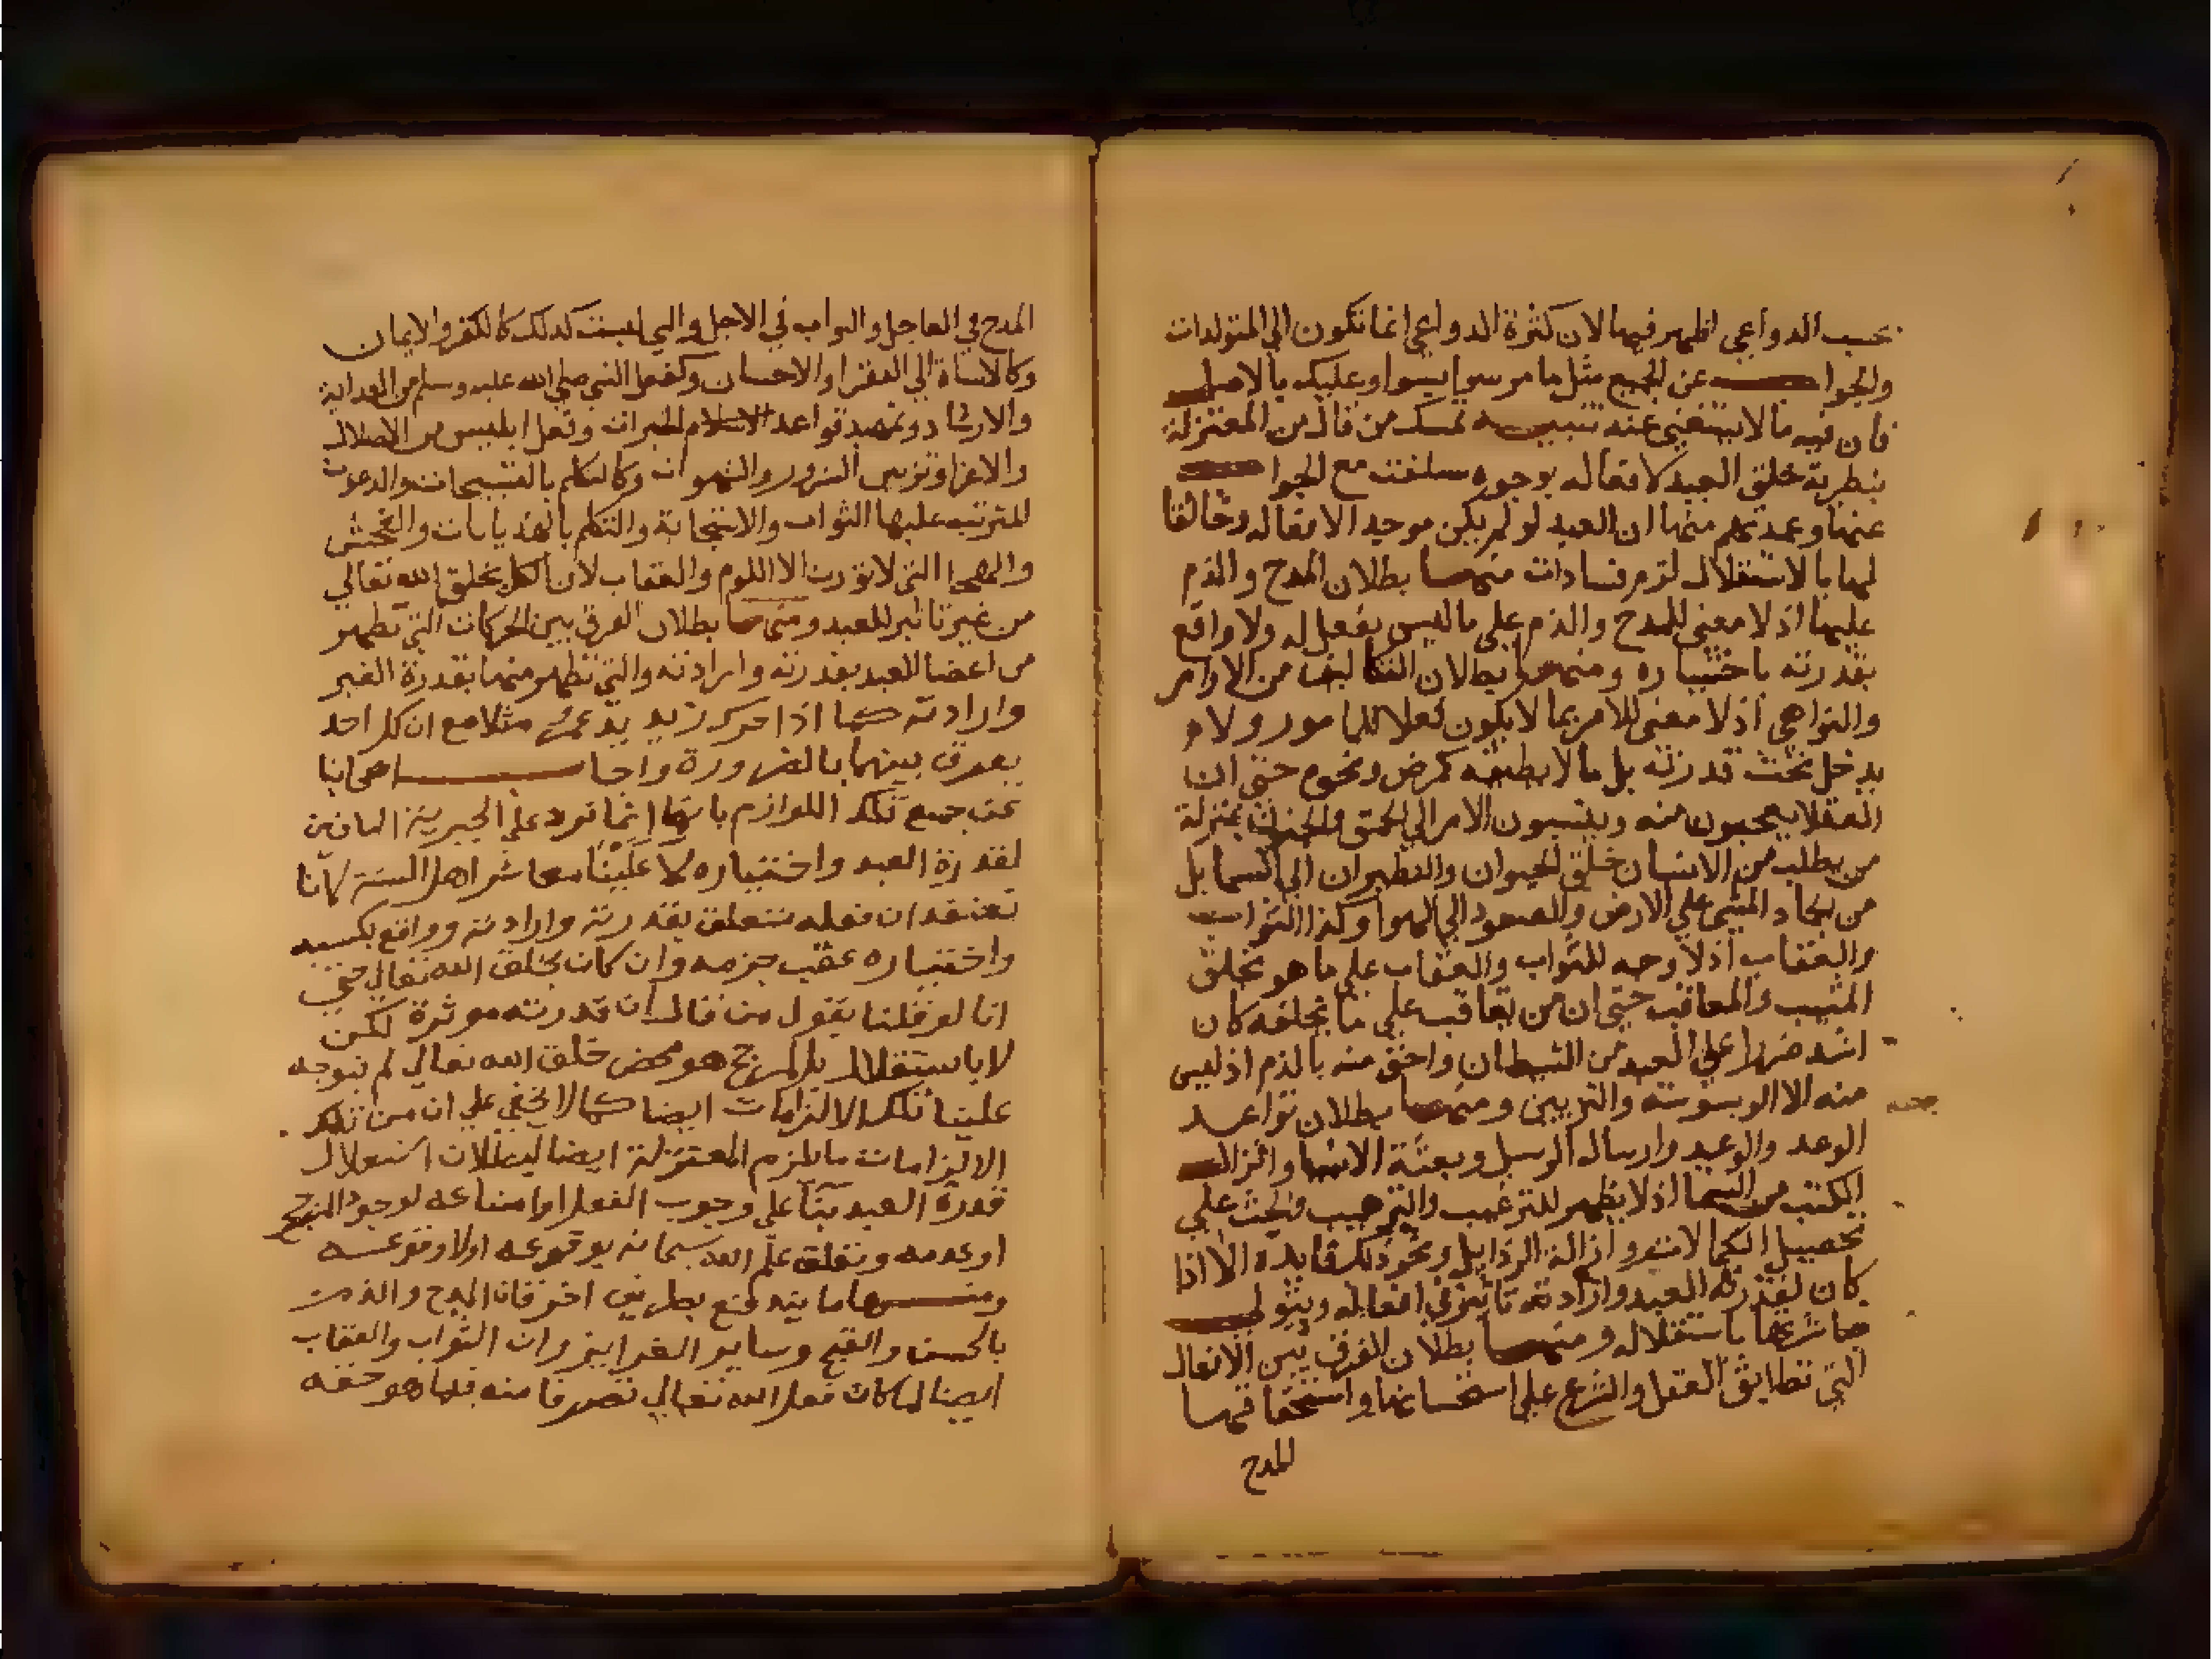 بحسب الدواعي اظهر فيها لان كثرة الدواعي انما تكون الي المتولدات
والجواب عن الجميع مثل ما مر سوا بسوا وعليك بالاصل
فان فيه ما لا يستغني عنه تنبيه تمسك من قال من المعتزلة
بنظرية خلق العبد لافعاله بوجوه سلفت مع الجواب
عنها وعمدتهم منها ان العبد لو لم يكن موجد الافعاله وخالقا
لها بالاستقلال لزم فسادات منها بطلان المدح والذم
عليها اذ لا معني للمدح والذم علي ما ليس بفعل له ولا واقع
بقدرته باختياره ومنها بطلان التكاليف من الاوامر
والنواهي اذ لا معني للامر بما لا يكون فعلا للمامور ولا م
يدخل تحت قدرته بل ما لا يطيقه كمرض ونحوه حتي ان
العقلا يعجبون منه وينسبون الامر الي الحمق والجنون بمنزلة
من يطلب من الانسان خلق الحيوان والطيران الي السما بل
من الجماد المشي علي الارض والصعود الي الهوا وكذا الثواب
والعقاب اذ لا وجه للثواب والعقاب علي ما هو بخلق
المثيب والمعاقب حتي ان من يعاقب علي ما يخلقه كان
اشد ضررا علي العبد من الشيطان واحق منه بالذم اذ ليس
منه الا الوسوسة والتزيين ومنها بطلان قواعد
الوعد والوعيد وارسال الرسل وبعثة الانبيا وانزال
الكتب من السما اذ لا يظهر للترغيب والترهيب والحث علي
تحصيل الكمالات وازالة الرذايل ونحو ذلك فايدة الا اذا
كان لقدرة العبد وارادته تاثير في افعاله ويتولي
مباشرتها باستقلاله ومنها بطلان الفرق بين الافعال
التي تطابق العقل والشرع علي استحسانها واستحقاقها
للمدح
المدح في العاجل والثواب في الاجل والتي ليست كذلك كالكفر والايمان
وكالاساة الي الفقرا والاحسان وكفعل النبي صلي الله عليه وسلم من الهداية
والارشاد وتمهيد قواعد الخيرات وفعل ابليس من الاضلال
والاغرا وتزيين الشرور والشهوات وكالتكلم بالتسبيحات والدعوات
المترتب عليها الثواب والاستجابة والتكلم بالهذيانات والفحش
والهجا التي لا تورث الا اللوم والعقاب لان الكل بخلق الله تعالي
من غير تاثير للعبد ومنها بطلان الفرق بين الحركات التي تظهر
من اعضا العبد بقدرته وارادته والتي تظهر منها بقدرة الغير
وارادته كما اذا حرك زيد يد عمرو مثلا مع ان كل احد
يفرق بينهما بالضرورة واجاب اصحابنا
عن جميع تلك اللوازم بانها انما ترد علي الجبرية النافين
لقدرة العبد واختياره لا علينا معاشر اهل السنة لانا
نعتقد ان فعله متعلق بقدرته وارادته وواقع بكسبه
واختياره عقب جزمه وان كان بخلق الله تعالي حتي
انا لو قلنا بقول من قال ان قدرته موثرة لكن
لا باستقلال بل المرجح هو محض خلق الله تعالي لم يتوجه
علينا تلك الالزامات ايضا كما لا يخفي علي ان من تلك
الالزامات ما يلزم المعتزلة ايضا لبطلان استقلال
قدرة العبد بنآ علي وجوب الفعل او امتناعه لوجود المرجح
او عدمه وتعلق علم الله سبحانه بوقوعه او لا وقوعه
ومنها ما يندفع بطريق اخر فان المدح والذم
بالحسن والقبح وساير الغرايز وان الثواب والعقاب
ايضا لما كان فعل الله تعالي تصرفا منه فيما هو حقه